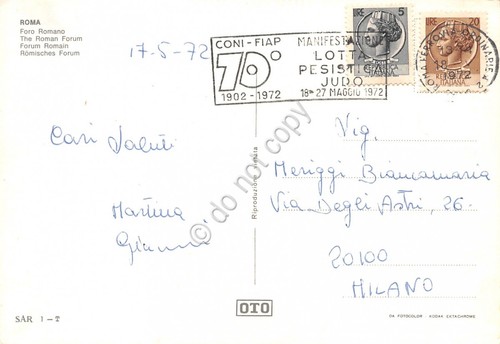 ROMA
Foro Romano
The Roman Forum
Forum Romain
Römisches Forum
17-5-72
CONI-FIAP
70°
1902-1972
MANIFESTAZIONI
LOTTA
PESISTICA
JUDO
18-27 MAGGIO 1972
LIRE 5
LIRE 20
ITALIANA
ROMA FERROVIA ORDINARIE
18
1972
Cari Saluti
Martina
Gianni
Riproduzione vietata
Vig.
Meriggi Biancamaria
Via Degli Astri, 26-
20100
MILANO
© do not copy
SÀR 1-T
OTO
DA FOTOCOLOR KODAK EKTACHROME